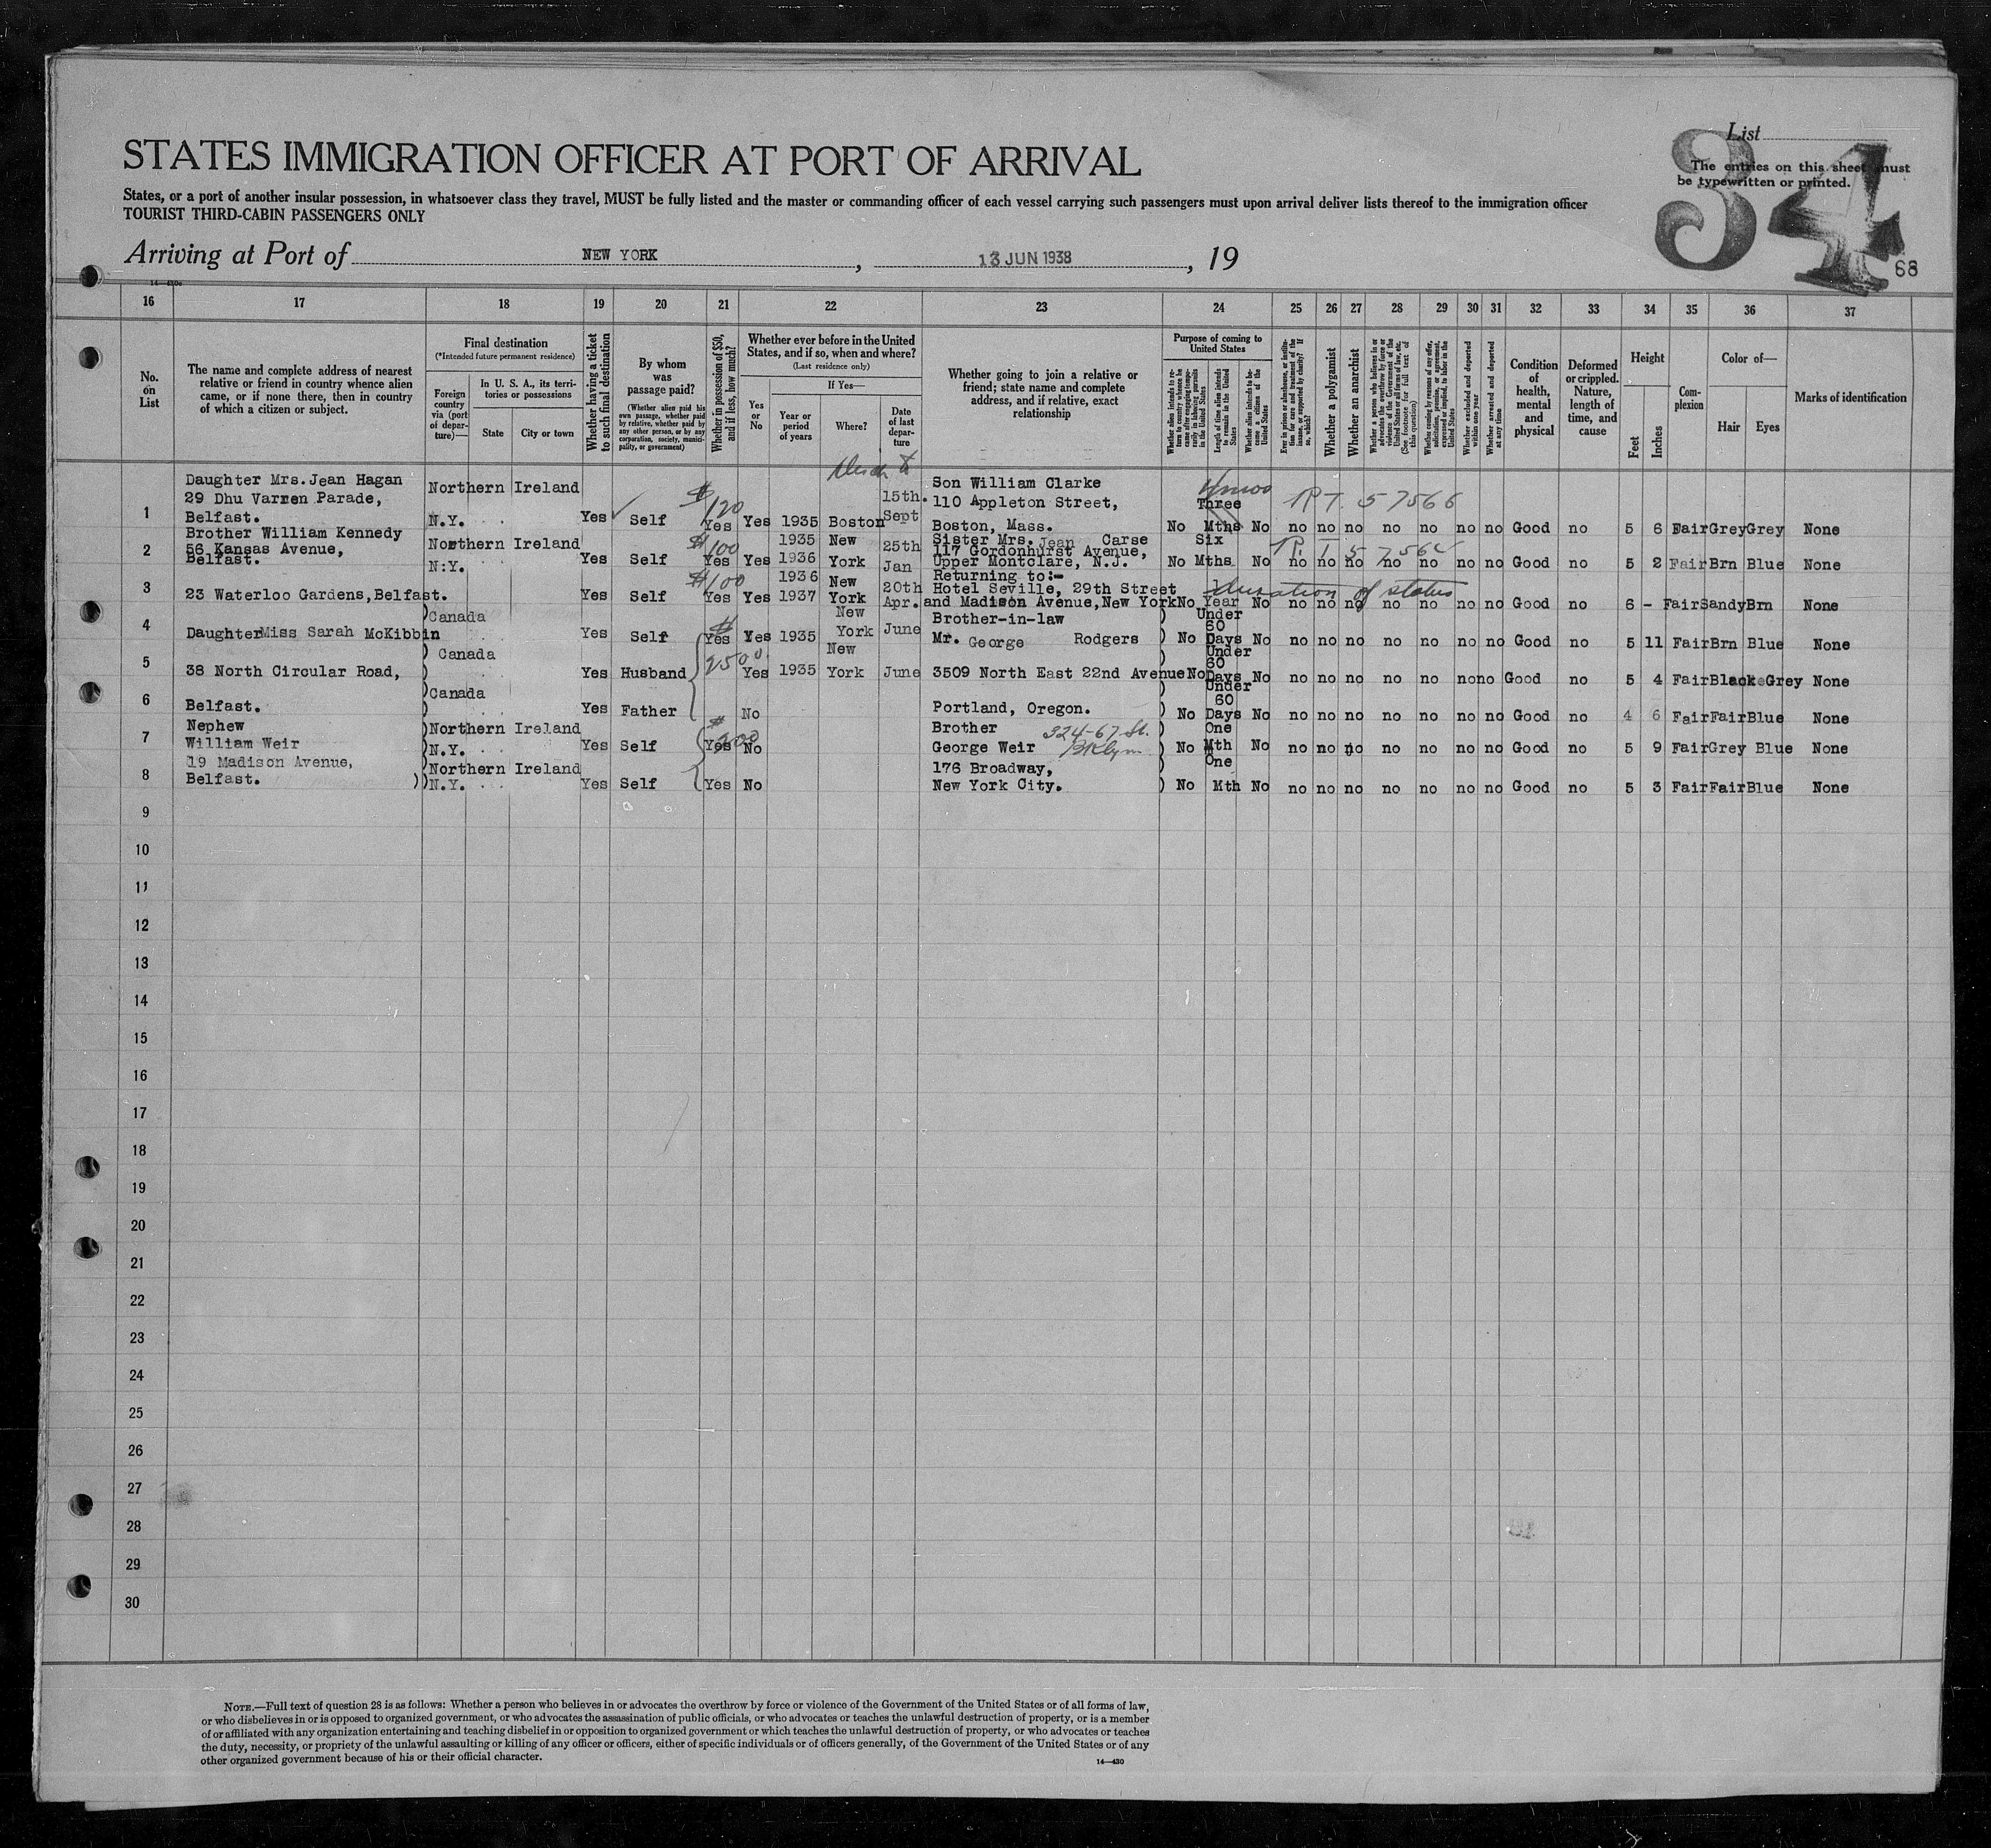 List
34
The entries on this sheet must
be typewritten or printed.
68
STATES IMMIGRATION OFFICER AT PORT OF ARRIVAL
States, or a port of another insular possession, in whatsoever class they travel, MUST be fully listed and the master or commanding officer of each vessel carrying such passengers must upon arrival deliver lists thereof to the immigration officer
TOURIST THIRD-CABIN PASSENGERS ONLY
Arriving at Port of NEW YORK, 13 JUN 1938, 19
16 17 18 19 20 21 22 23 24 25 26 27 28 29 30 31 32 33 34 35 36 37
No. on List
The name and complete address of nearest
relative or friend in country whence alien
came, or if none there, then in country
of which a citizen or subject.
Final destination
(*Intended future permanent residence)
Foreign country via (port of departure)—
In U. S. A., its territories or possessions
State
City or town
Whether having a ticket to such final destination
By whom was passage paid?
(Whether alien paid his own passage, whether paid by relative, whether paid by any other person, or by any corporation, society, municipality, or government)
Whether in possession of $50, and if less, how much?
Whether ever before in the United
States, and if so, when and where?
(Last residence only)
Yes or No
If Yes—
Year or period of years
Where?
Date of last departure
Whether going to join a relative or
friend; state name and complete
address, and if relative, exact
relationship
Purpose of coming to United States
Whether alien intends to return to country whence he came after engaging temporarily in laboring pursuits in the United States
Length of time alien intends to remain in the United States
Whether alien intends to become a citizen of the United States
Ever in prison or almshouse, or institution for care and treatment of the insane, or supported by charity? If so, which?
Whether a polygamist
Whether an anarchist
Whether a person who believes in or advocates the overthrow by force or violence of the Government of the United States or all forms of law, etc. (See footnote for full text of this question)
Whether coming by reasons of any offer, solicitation, promise, or agreement, expressed or implied, to labor in the United States
Whether excluded and deported within one year
Whether arrested and deported at any time
Condition of health, mental and physical
Deformed or crippled. Nature, length of time, and cause
Height
Feet
Inches
Complexion
Color of—
Hair
Eyes
Marks of identification
Daughter Mrs. Jean Hagan Son William Clarke
29 Dhu Varren Parade, Northern Ireland $120 15th. 110 Appleton Street, Three R T. 57566
1 Belfast. N.Y. Yes Self Yes Yes 1935 Boston Sept Boston, Mass. No Mths No no no no no no no no Good no 5 6 Fair Grey Grey None
Brother William Kennedy Northern Ireland $100 1935 New 25th Sister Mrs. Jean Carse Six
56 Kansas Avenue, 117 Gordonhurst Avenue,
2 Belfast. N.Y. Yes Self Yes Yes 1936 York Jan Upper Montclare, N.J. No Mths No no no no no no no no Good no 5 2 Fair Brn Blue None
$100 1936 New 20th Returning to:-
Hotel Seville, 29th Street duration of status
3 23 Waterloo Gardens, Belfast. Yes Self Yes Yes 1937 York Apr. and Madison Avenue, New York No Year No no no no no no no no Good no 6 - Fair Sandy Brn None
Canada New Brother-in-law Under 60
4 Daughter Miss Sarah McKibbin Yes Self $ Yes Yes 1935 York June Mr. George Rodgers No Days No no no no no no no no Good no 5 11 Fair Brn Blue None
Canada 2500. New Under 60
5 38 North Circular Road, Yes Husband Yes 1935 York June 3509 North East 22nd Avenue No Days No no no no no no no no Good no 5 4 Fair Black Grey None
Canada Under 60
6 Belfast. Yes Father No Portland, Oregon. No Days No no no no no no no no Good no 4 6 Fair Fair Blue None
Nephew Northern Ireland $200 Brother 324-67 St. One
7 William Weir N.Y. Yes Self Yes No George Weir Bklyn. No Mth No no no no no no no no Good no 5 9 Fair Grey Blue None
19 Madison Avenue, Northern Ireland 176 Broadway, One
8 Belfast. N.Y. Yes Self Yes No New York City. No Mth No no no no no no no no Good no 5 3 Fair Fair Blue None
9
10
11
12
13
14
15
16
17
18
19
20
21
22
23
24
25
26
27
28
29
30
NOTE.—Full text of question 28 is as follows: Whether a person who believes in or advocates the overthrow by force or violence of the Government of the United States or of all forms of law,
or who disbelieves in or is opposed to organized government, or who advocates the assassination of public officials, or who advocates or teaches the unlawful destruction of property, or is a member
of or affiliated with any organization entertaining and teaching disbelief in or opposition to organized government or which teaches the unlawful destruction of property, or who advocates or teaches
the duty, necessity, or propriety of the unlawful assaulting or killing of any officer or officers, either of specific individuals or of officers generally, of the Government of the United States or of any
other organized government because of his or their official character.
14—430